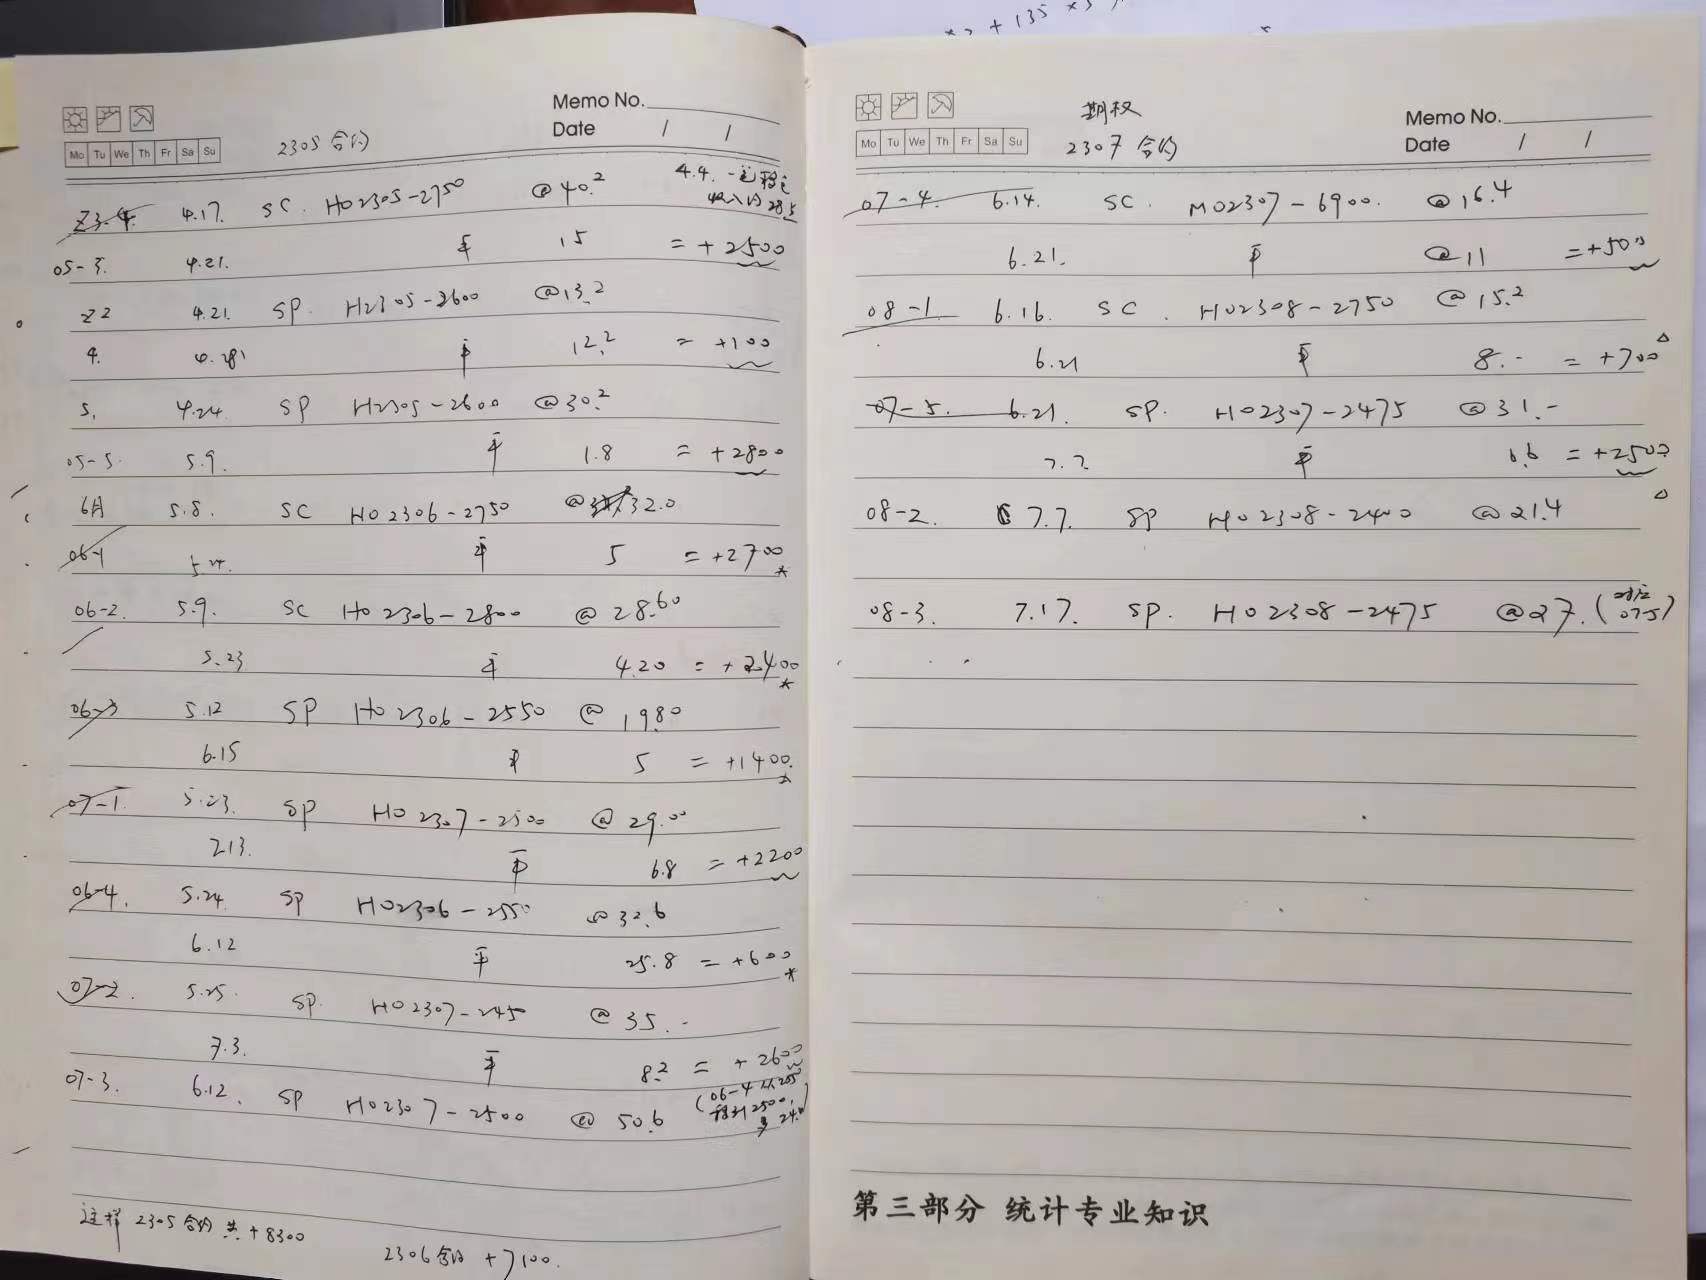 Memo No.
Date / /
Mo Tu We Th Fr Sa Su
2305 合约
4.4. 一定稳定
收入的 28.5
Z3-4 4.17. SC. HO2305-2750 @40.2
05-3. 4.21. 平 15 = +2500
Z2 4.21. SP. H2305-2600 @13.2
4. 4.28 平 12.2 = +100
5. 4.24 SP H2305-2600 @30.2
05-5. 5.9. 平 1.8 = +2800
6月 5.8. SC HO2306-2750 @32.0
06-1 5.24. 平 5 = +2700
06-2. 5.9. SC HO2306-2800 @28.60
5.23 平 4.20 = +2400
06-3 5.12 SP HO2306-2550 @19.80
6.15 平 5 = +1400.
07-1 5.23. SP HO2307-2500 @29.00
7.13. 平 6.8 = +2200
06-4. 5.24 SP HO2306-2550 @32.6
6.12 平 25.8 = +600
07-2. 5.25. SP. HO2307-245 @35.-
7.3. 平 8.2 = +2600
07-3. 6.12. SP HO2307-2500 @50.6 (06-4
2500,
这样 2305合约 共 +8300
2306合约 +7100.
Memo No.
Date / /
Mo Tu We Th Fr Sa Su
期权
2307 合约
07-4. 6.14. SC. MO2307-6900. @16.4
6.21. 平 @11 = +500
08-1. 6.16. SC. HO2308-2750 @15.2
6.21 平 8.- = +700
07-5. 6.21. SP. HO2307-2475 @31.-
7.7. 平 6.6 = +2500
08-2. 7.7. SP HO2308-2400 @21.4
08-3. 7.17. SP. HO2308-2475 @27. (对应 07-5)
第三部分 统计专业知识